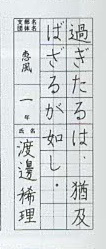 過ぎたるは、猶及
ばざるが如し。
支部名
団体名
恵風
一年
氏名
渡邊稀理